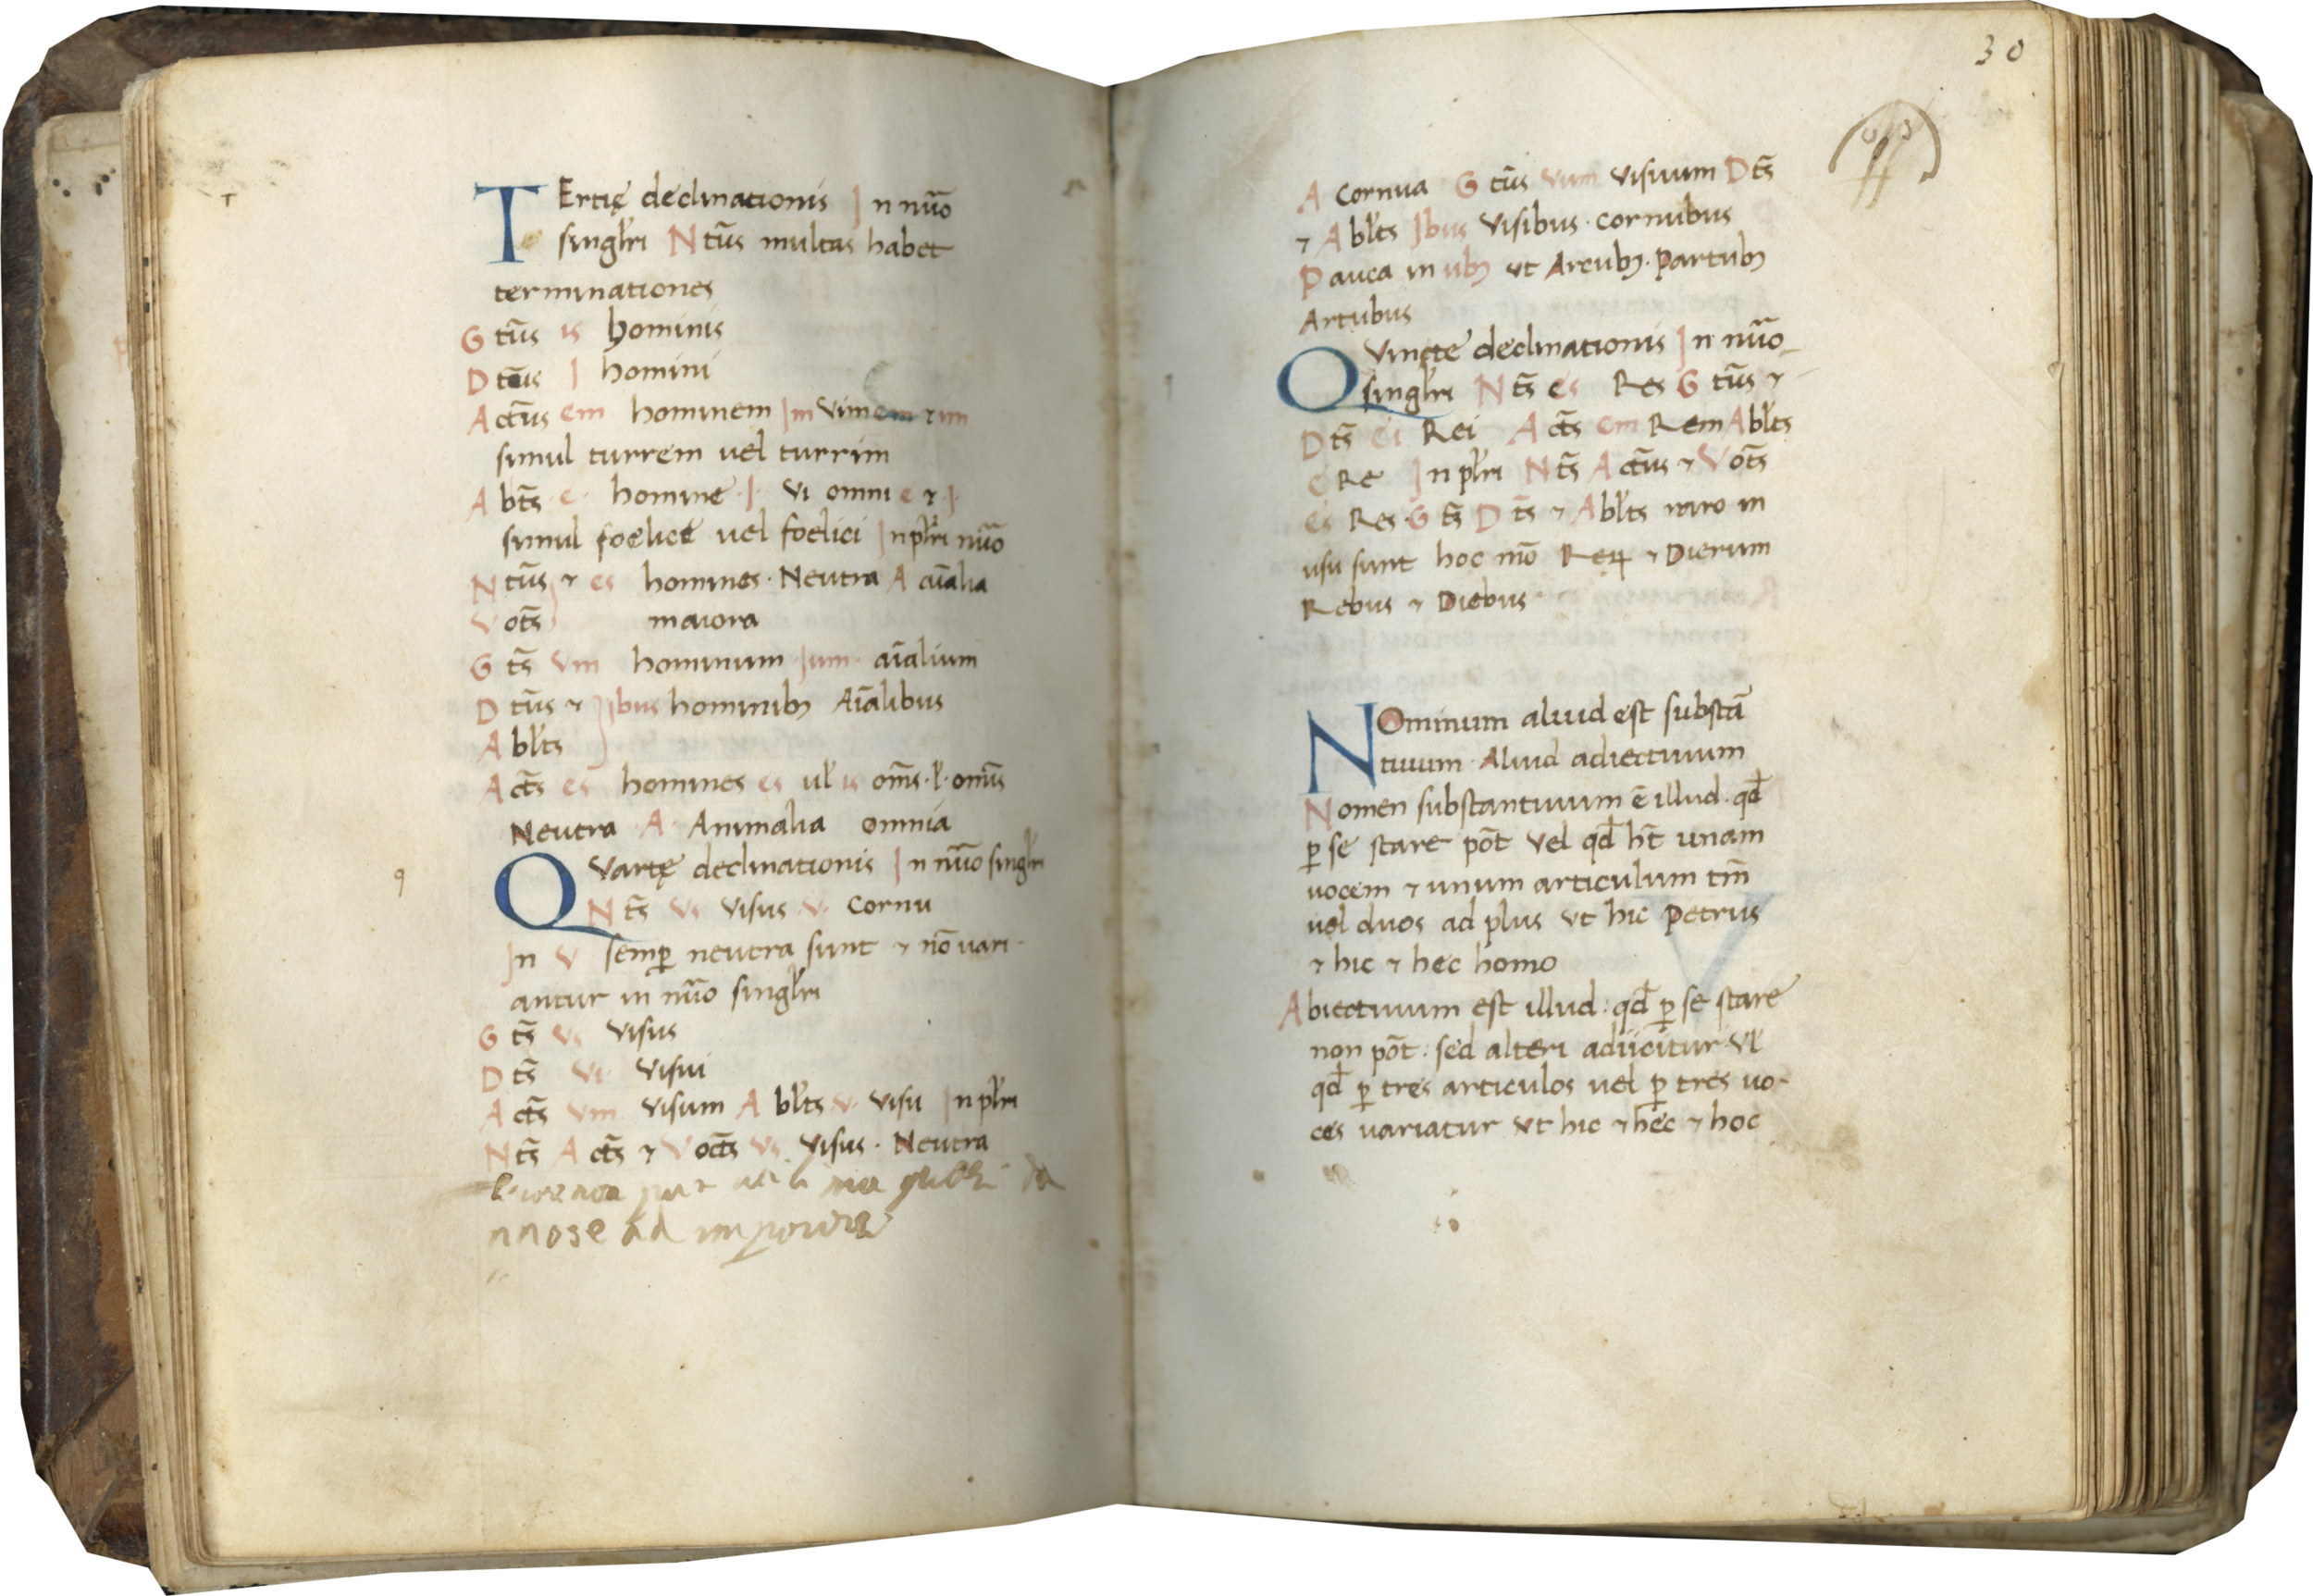 T
TErtię declinationis In nūo
singl'ri Ntūs multas habet
terminationes
Gtūs is hominis
Dtūs I homini
Actūs em hominem Im Vimem ⁊ im
simul turrem uel turrim
Abts̄ e· homine ·I· Vi omni e ⁊ ·I·
simul foelice uel foelici In pl'ri nūo
Ntūs ⁊ es homines · Neutra A aīalia
Vots̄ maiora
Gts̄ Vm hominum ·Ium· aīalium
Dtūs ⁊ Ibus hominibꝫ Aīalibus
Abl'ts
Acts̄ es homines es ul' is om̄s · l' · omīs
Neutra · A · Animalia omnia
q
QVartę declinationis In nūo singl'ri
Nts̄ Vs Visus · V · Cornu
In V semꝑ neutra sunt ⁊ nō uari-
antur in nūo singl'ri
Gts̄ Vs Visus
Dts̄ Vi Visui
Acts̄ Vm Visum Abl'ts · V · Visu In pl'ri
Nts̄ Acts̄ ⁊ Vocts̄ Vs Visus · Neutra
30
A Cornua Gtūs Vum Visuum Dts̄
⁊ Abl'ts Ibus Visibus · Cornubus
Pauca in ubꝫ ut Arcubꝫ · Partubꝫ
Artubus
QVincte declinationis In nūo
singl'ri Nts̄ es Res Gtūs ⁊
Dts̄ ei Rei Acts̄ em Rem Abl'ts
e Re In pl'ri Nts̄ Actūs ⁊ Vots̄
es Res · Gts̄ Dts̄ ⁊ Abl'ts raro in
usu sunt hoc mō Reꝝ ⁊ Dierum
Rebus ⁊ Diebus
NOminum aliud est substā
tiuum · Aliud adiectiuum
Nomen substantiuum ē illud · qd̄
ꝑ se stare pōt Vel qd̄ ht̄ unam
uocem ⁊ unum articulum tm̄
uel duos ad plus Vt hic Petrus
⁊ hic ⁊ hec homo
Abiectiuum est illud : qd̄ ꝑ se stare
non pōt : sed alteri adiicitur Vl'
qd̄ ꝑ tres articulos uel ꝑ tres uo-
ces uariatur Vt hic ⁊ hec ⁊ hoc